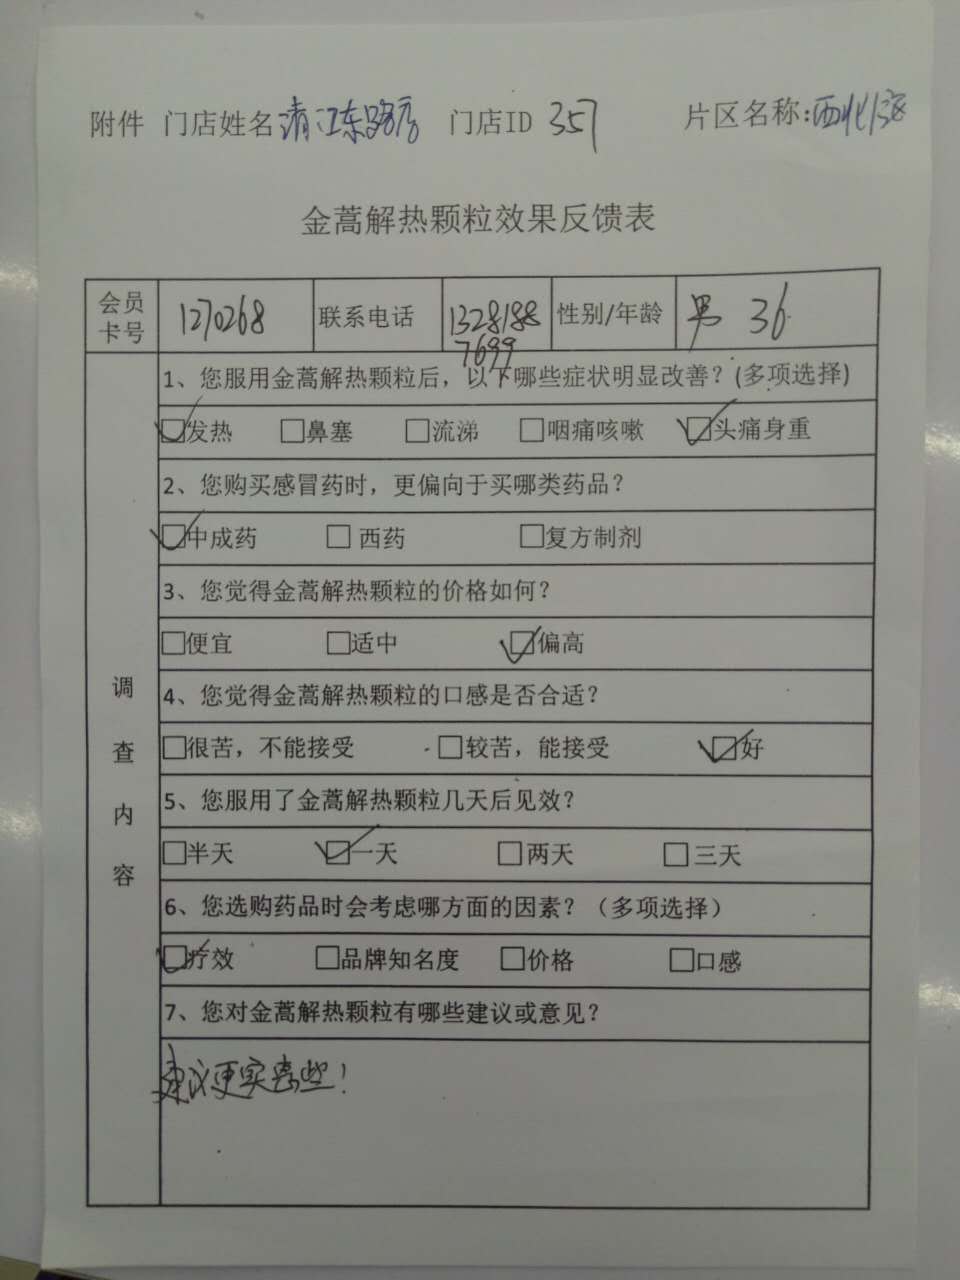 附件 门店姓名清江东路店 门店ID 357 片区名称:西北片区
金蒿解热颗粒效果反馈表
会员卡号 1270268 联系电话 13281887699 性别/年龄 男 36
调查内容
1、您服用金蒿解热颗粒后，以下哪些症状明显改善？(多项选择)
☑发热 □鼻塞 □流涕 □咽痛咳嗽 ☑头痛身重
2、您购买感冒药时，更偏向于买哪类药品？
☑中成药 □ 西药 □复方制剂
3、您觉得金蒿解热颗粒的价格如何？
□便宜 □适中 ☑偏高
4、您觉得金蒿解热颗粒的口感是否合适？
□很苦，不能接受 □较苦，能接受 ☑好
5、您服用了金蒿解热颗粒几天后见效？
□半天 ☑一天 □两天 □三天
6、您选购药品时会考虑哪方面的因素？（多项选择）
☑疗效 □品牌知名度 □价格 □口感
7、您对金蒿解热颗粒有哪些建议或意见？
建议更实惠些！